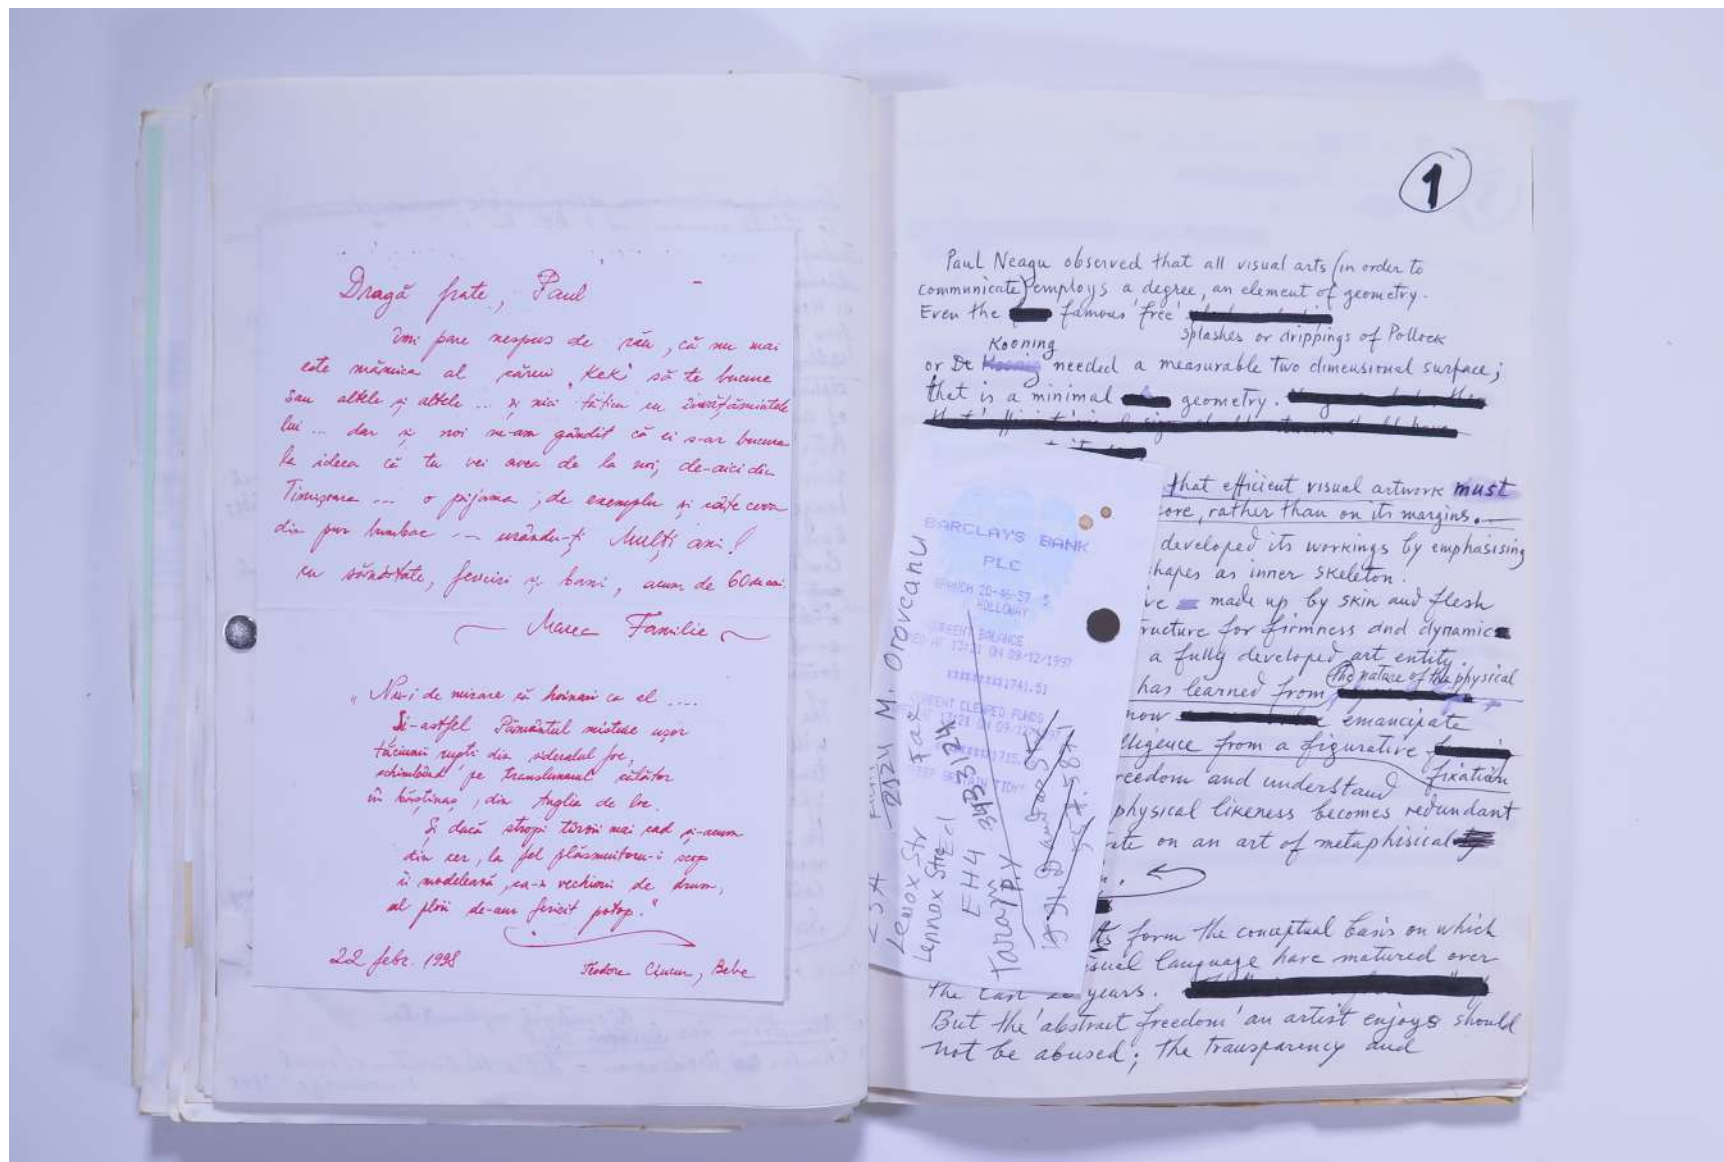 Dragă frate, Paul
îmi pare nespus de rău, că nu mai
este mămica al cărui "Keki" să te bucure
sau altele și altele ... și nici tăticu cu învățămintele
lui ... dar și noi ne-am gândit că ei s-ar bucura
la ideea că tu vei avea de la noi, de-aici din
Timișoara ... o pijama, de exemplu și câte ceva
din pur bumbac ... urându-ți Mulți ani!
cu sănătate, fericiri și bani, acum de 60 de ani.
Marea Familie
"Nu-i de mirare că hoinari ca el ....
Și-astfel Pământul mistuie ușor
tăciunii rupți din sideralul foc,
schimbând pe translunarul călător
în băștinaș, din Anglia de loc.
Și dacă stropi târzii mai cad și-acum
din cer, la fel plăsmuitoru-i scop
îi modelează, ca-n vechiul de drum,
al ploii de-aur fericit potop."
22 febr. 1998
Bebe
1
Paul Neagu observed that all visual arts (in order to
communicate) employs a degree, an element of geometry.
Even the famous 'free'
splashes or drippings of Pollock
Kooning
or De needed a measurable two dimensional surface;
that is a minimal geometry.
that efficient visual artwork must
ore, rather than on its margins.
developed its workings by emphasising
hapes as inner skeleton.
ve made up by skin and flesh
ructure for firmness and dynamic
a fully developed art entity.
the nature of the physical
has learned from
now emancipate
lligence from a figurative
fixation
reedom and understand
physical likeness becomes redundant
te on an art of metaphisical
ts form the conceptual basis on which
isual language have matured over
the last 20 years.
But the 'abstract freedom' an artist enjoys should
not be abused; the transparency and
BARCLAYS BANK
PLC
BRANCH 20-46-57
HOLLOWAY
CURRENT BALANCE
13:21 ON 09/12/1997
1741.51
CURRENT CLEARED FUNDS
13:21 ON 09/12/1997
1715.
KEEP BRITAIN TIDY
M. Oroveanu
Fax
Lenox Str
Lennox Str
Ed
EH4 3433124